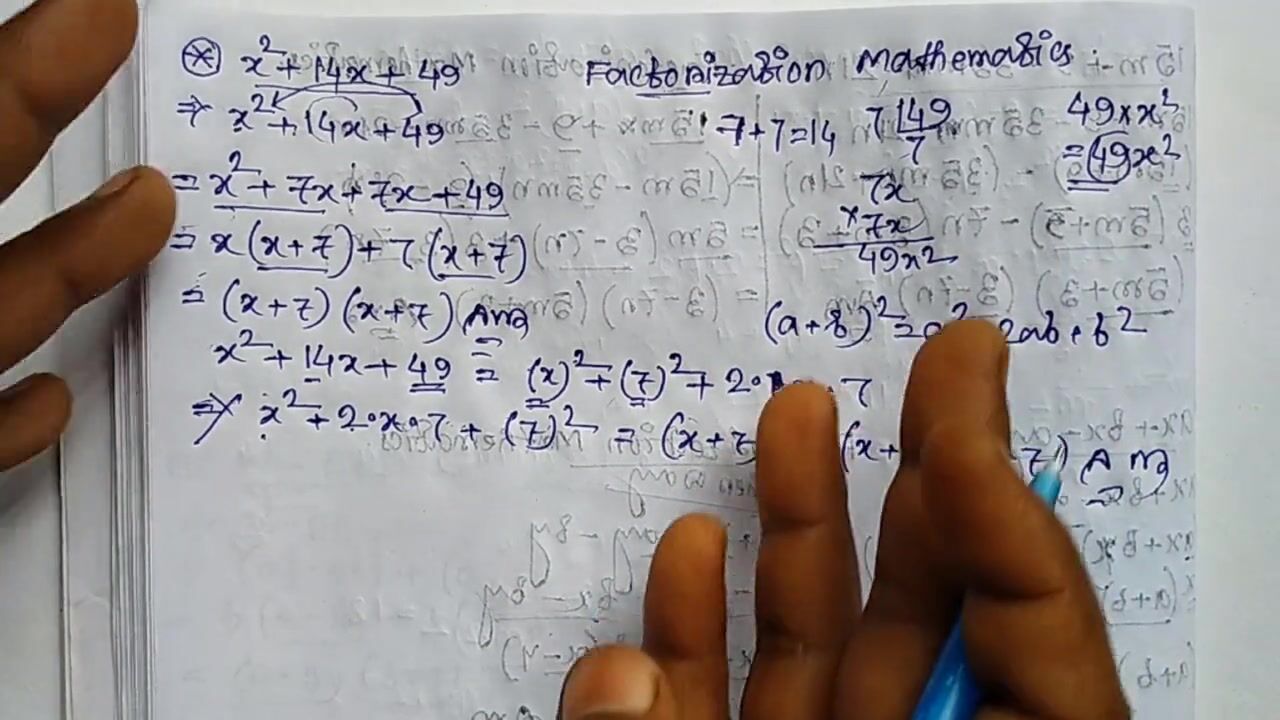 x² + 14x + 49 Factorization Mathematics.
⇒ x² + 14x + 49 7+7=14 7 | 49 49 × x²
7 = 49x²
= x² + 7x + 7x + 49 7x
× 7x
= x (x+7) + 7 (x+7) 49x²
= (x+7) (x+7) Ans
(a+b)² = a² 2ab + b²
x² + 14x + 49 = (x)² + (7)² + 2· · 7
⇒ x² + 2·x·7 + (7)² = (x+7 (x+ 7) Ans